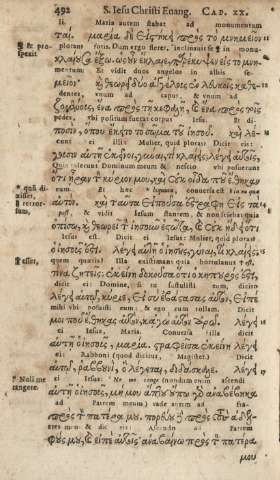 492 S. Iesu Christi Euang. CAP. XX.
li. Maria autem stabat ad monumentum
ται. μαρία δὲ εἱστήκει πρὸς τὸ μνημεῖον
plorans foris. Dum ergo fleret, inclinauit se in monu-
κλαίουσα ἔξω. ὡς οὖν ἔκλαιε, παρέκυψεν εἰς τὸ μνη-
mentum: Et vidit duos angelos in albis se-
μεῖον· καὶ θεωρεῖ δύο ἀγγέλους ἐν λευκοῖς καθε-
dentes, vnum ad caput, & vnum ad
ζομένους, ἕνα πρὸς τῇ κεφαλῇ, καὶ ἕνα πρὸς τοῖς
pedes, vbi positum fuerat corpus Iesu. Et di-
ποσὶν, ὅπου ἔκειτο τὸ σῶμα τοῦ ἰησοῦ. καὶ λέ-
cunt ei illi: Mulier, quid ploras? Dicit eis:
γουσιν αὐτῇ ἐκεῖνοι, γύναι, τί κλαίεις; λέγει αὐτοῖς,
Quia tulerunt Dominum meum: & nescio vbi posuerunt
ὅτι ἦραν τὸν κύριόν μου, καὶ οὐκ οἶδα ποῦ ἔθηκαν
eum. Et hæc conuersa est
αὐτόν. καὶ ταῦτα εἰποῦσα ἐστράφη εἰς τὰ
& vidit Iesum stantem, & non sciebat quia
ὀπίσω, καὶ θεωρεῖ τὸν ἰησοῦν ἑστῶτα, καὶ οὐκ ᾔδει ὅτι
Iesus est. Dicit ei Iesus: Mulier, quid ploras?
ὁ ἰησοῦς ἐστι. λέγει αὐτῇ ὁ ἰησοῦς, γύναι, τί κλαίεις;
quem quæris? Illa existimans quia hortulanus
τίνα ζητεῖς; ἐκείνη δοκοῦσα ὅτι ὁ κηπουρός ἐστι,
dicit ei: Domine, si sustulisti eum, dicito
λέγει αὐτῷ, κύριε, εἰ σὺ ἐβάστασας αὐτὸν, εἰπὲ
mihi vbi posuisti eum: & ego eum tollam. Dicit
μοι ποῦ ἔθηκας αὐτὸν, κἀγὼ αὐτὸν ἀρῶ. λέγει
ei Iesus, Maria. Conuersa illa dicit
αὐτῇ ὁ ἰησοῦς, μαρία. στραφεῖσα ἐκείνη λέγει
ei: Rabboni (quod dicitur, Magister.) Dicit
αὐτῷ, ῥαββουνί, ὃ λέγεται, διδάσκαλε. λέγει
ei Iesus: Ne me tange (nondum enim ascendi
αὐτῇ ὁ ἰησοῦς, μή μου ἅπτου· οὔπω γὰρ ἀναβέβηκα
ad Patrem meum) vade autem ad
πρὸς τὸν πατέρα μου. πορεύου δὲ πρὸς τοὺς ἀδελ-
tres meos & dic eis: Ascendo ad Patrem
φούς μου, καὶ εἰπὲ αὐτοῖς· ἀναβαίνω πρὸς τὸν πατέρα
μου
& pro-
spexit
retror-
sum,
esset,
Noli me
tangere.